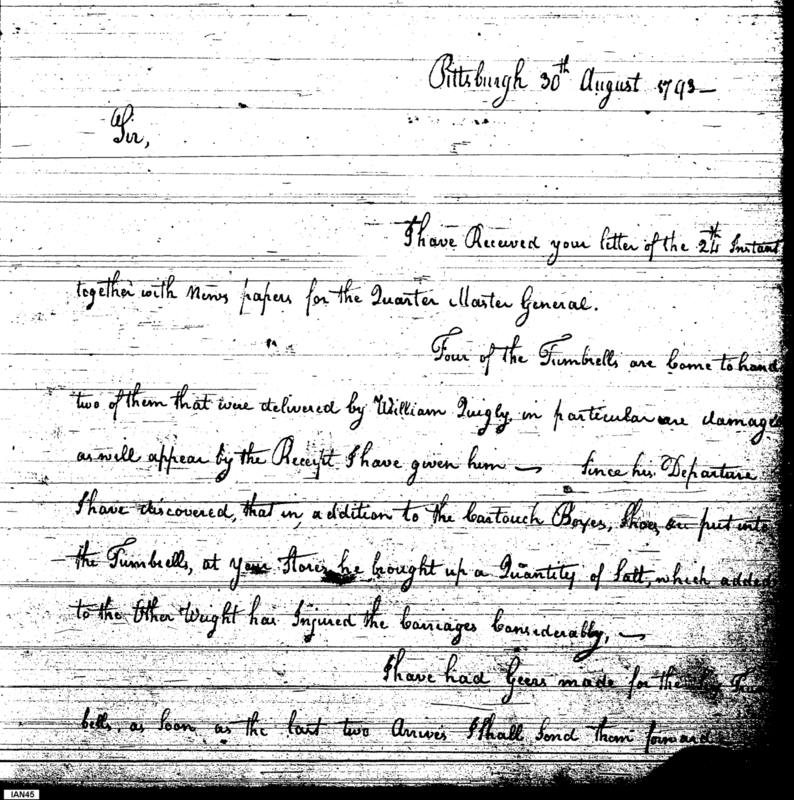 Pittsburgh 30th August 1793—
Sir,
I have Received your letter of the 24th Instant
together with News papers for the Quarter Master General.
Four of the Tumbrells are Come to hand
two of them that were delivered by William Quigby in particular are damaged
as will appear by the Receipt I have given him — Since his Departure
I have discovered, that in addition to the Cartouch Boxes, Shoes &c put into
the Tumbrells, at your Stores he brought up a Quantity of Salt, which added
to the Other Weight has Injured the Carriages Considerably, —
I have had Geers made for the
bells, as Soon as the last two Arrives I Shall Send them forward
IAN45